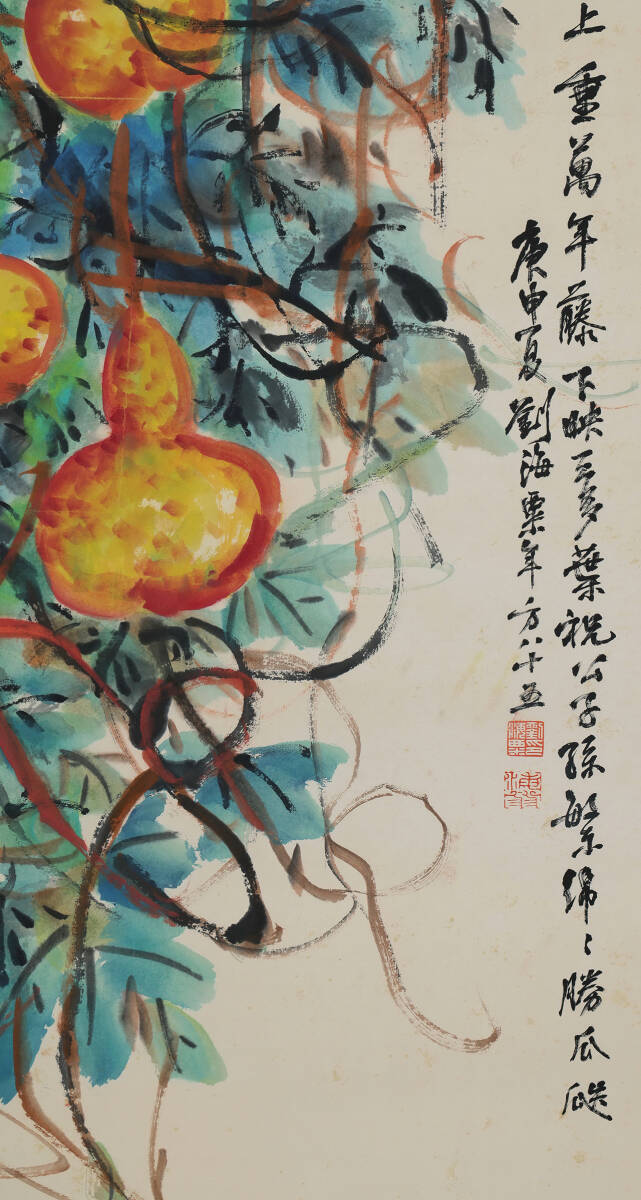 上垂萬年藤下映三多葉祝公子孫繁綿〻勝瓜瓞
庚申夏劉海粟年方八十五